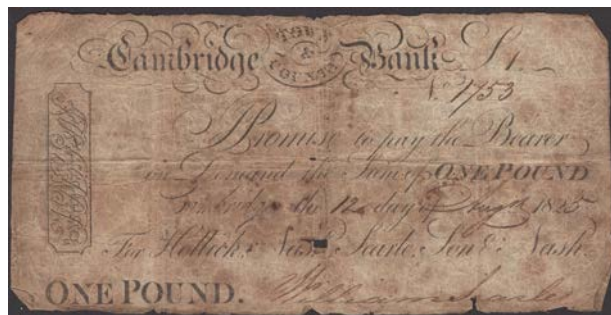 Cambridge TOWN & COUNTY Bank £1.
No. 1753
I Promise to pay the Bearer
on Demand the Sum of ONE POUND
Cambridge the 12 day of Augst 1825
For Hollick, Nash, Searle, Son & Nash
ONE POUND. William Searle